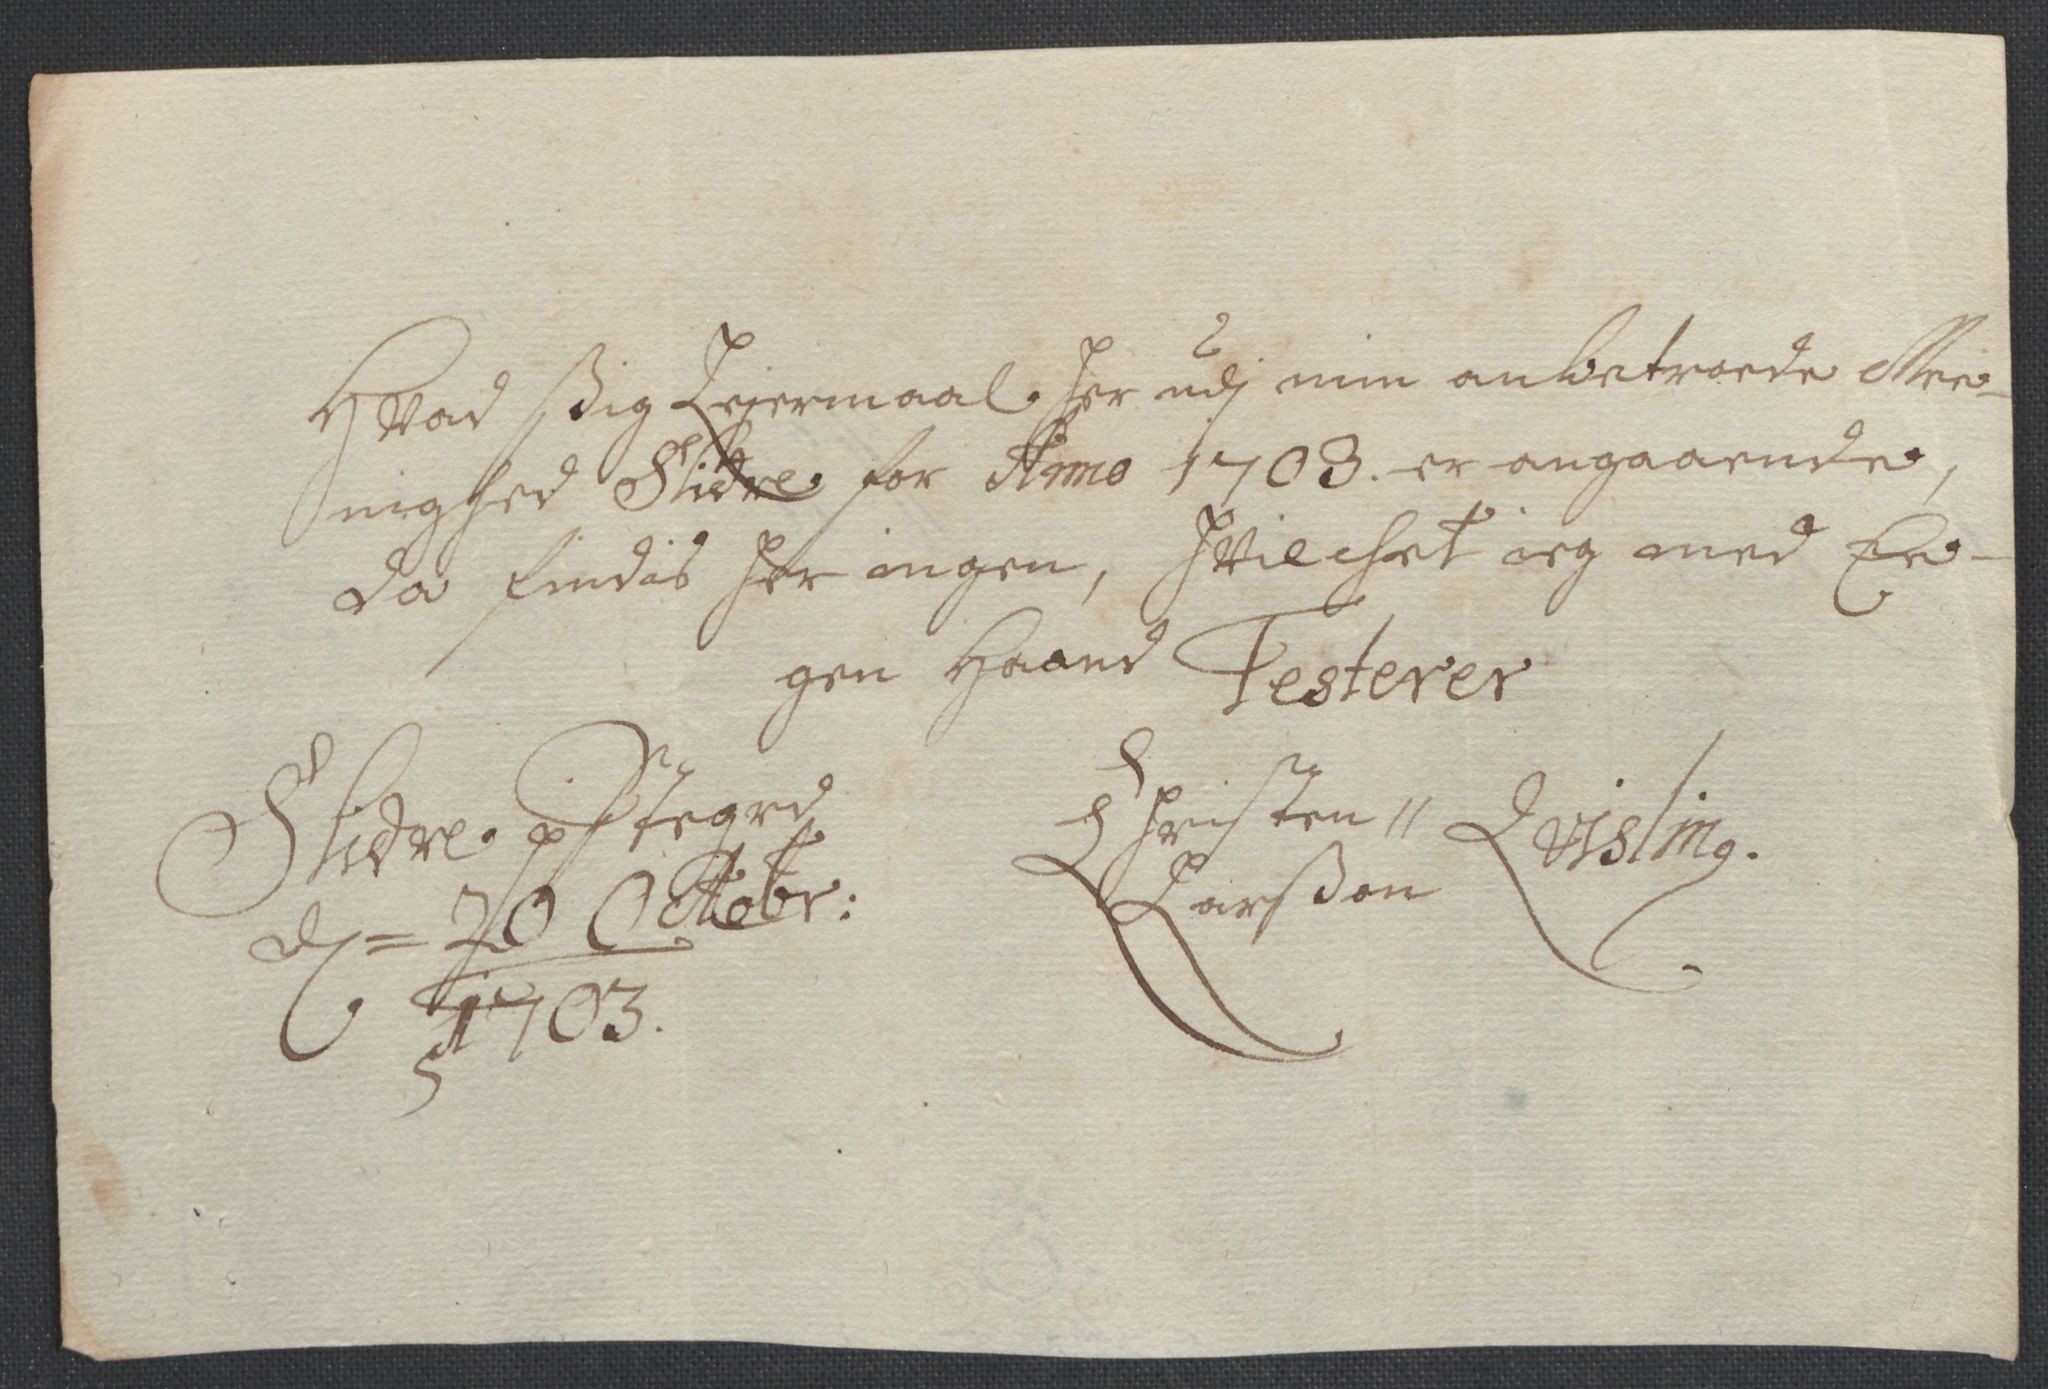 Hvad sig Leiermaal her udj min anbetroede Mee-
nighed Slidre for Anno 1703. er angaaende,
da findis her ingen, hvilchet ieg med Ee-
gen Haand Testerer
Slidre prestegrd
d = 20 Octobr:
1703.
Christen Larsson Qvisling.